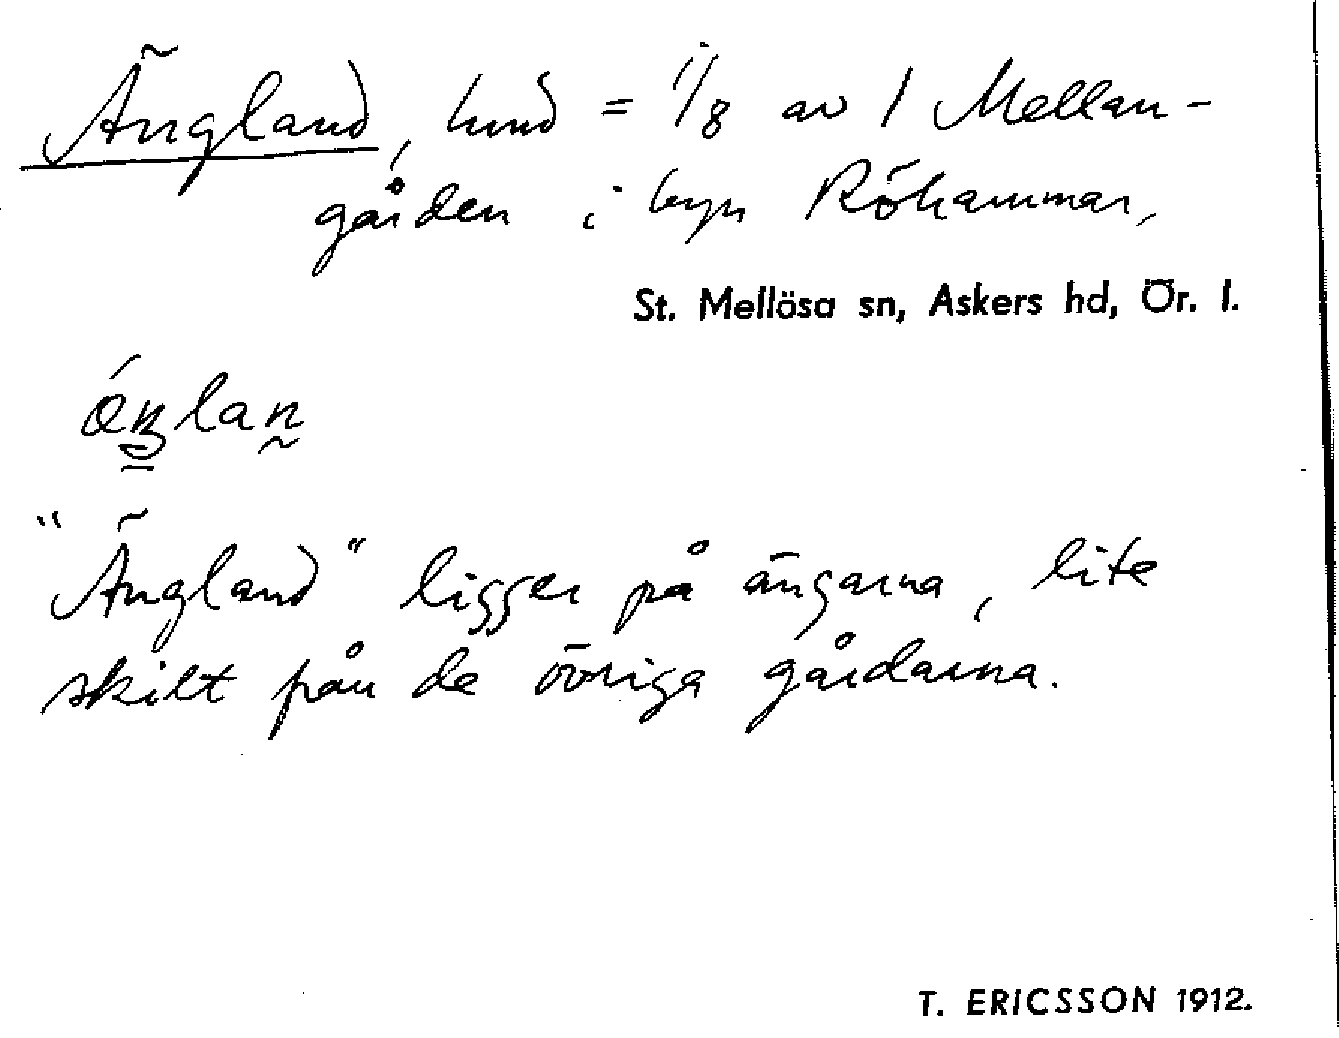 Ängland, hmd = 1/8 av 1 Mellan-
gården i byn Röhammar,
St. Mellösa sn, Askers hd, Ör. l.
ǽŋlan
"Ängland" ligger på ängarna, lite
skilt från de övriga gårdarna.
T. ERICSSON 1912.